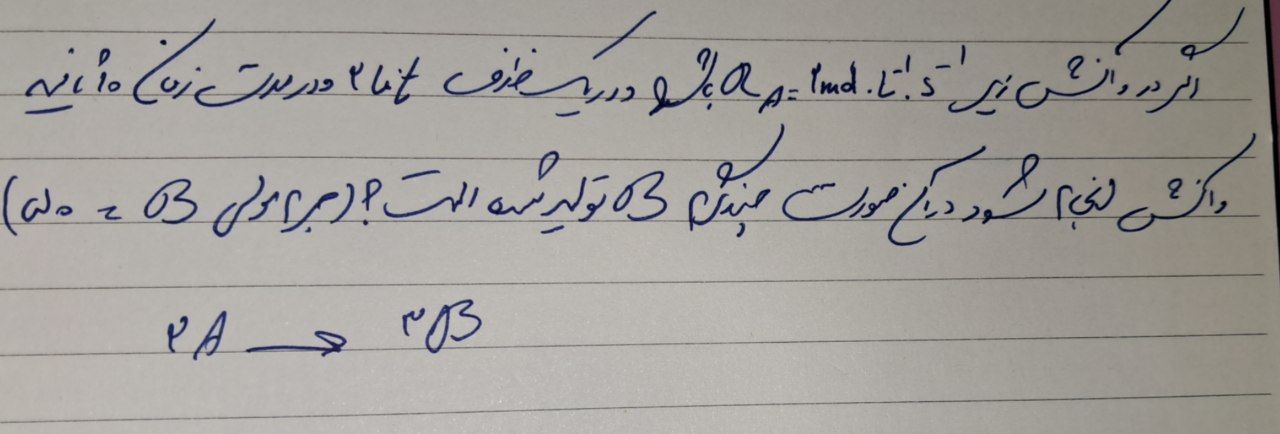 اگر در واکنش زیر R A = 1 mol . L⁻¹ . s⁻¹ باشد و در یک ظرف ۲ Lit و در مدت زمان ۱۰ ثانیه
واکنش انجام شود در آن صورت چند گرم B تولید شده است؟ (جرم مولی B = ۵۰)
۲A → ۳B